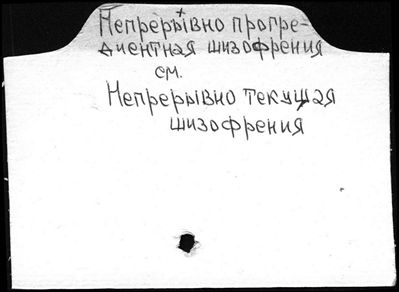 Непрерывно прогре-
диентная шизофрения
см.
Непрерывно текущая
шизофрения